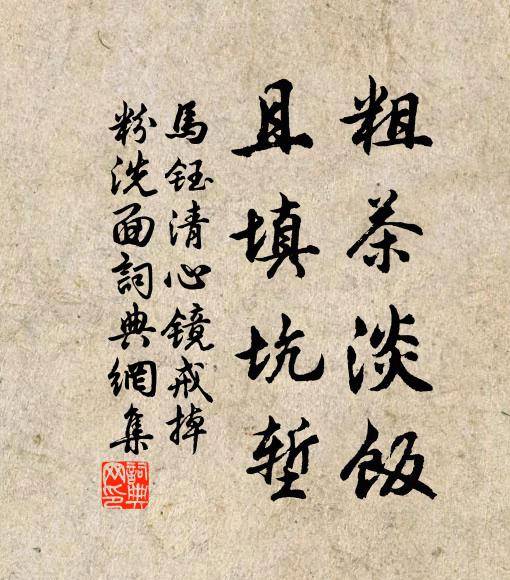 粗茶淡饭
且填坑堑
馬鈺清心镜戒掉
粉洗面詞典網集
詞典
网印